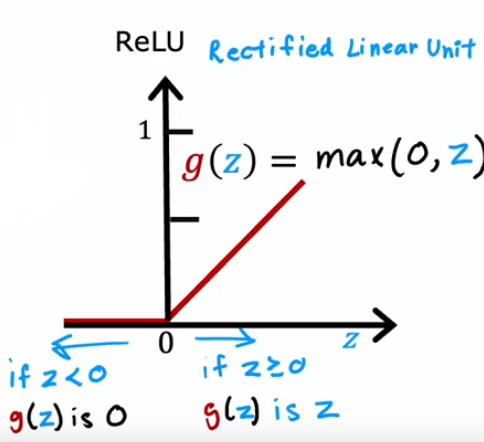 ReLU Rectified Linear Unit
1
g(z) = max(0, z)
0
z
if z<0
g(z) is 0
if z≥0
g(z) is z